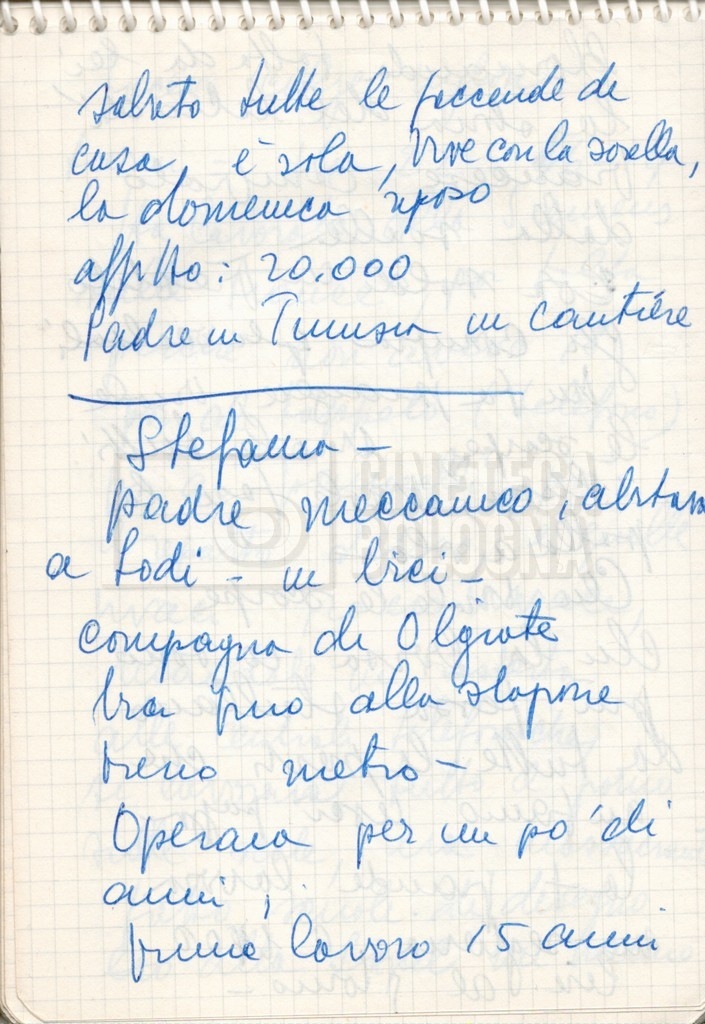 sabato tutte le faccende di
casa, è sola, vive con la sorella,
la domenica riposo
affitto: 20.000
Padre in Tunisia in cantiere
Stefania -
padre meccanico, abitava
a Lodi - in bici -
compagna di Olgiate
bici fino alla stazione
treno metro -
Operaia per un po' di
anni,
primo lavoro 15 anni
CINETECA
BOLOGNA